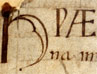 HPÆ
na m